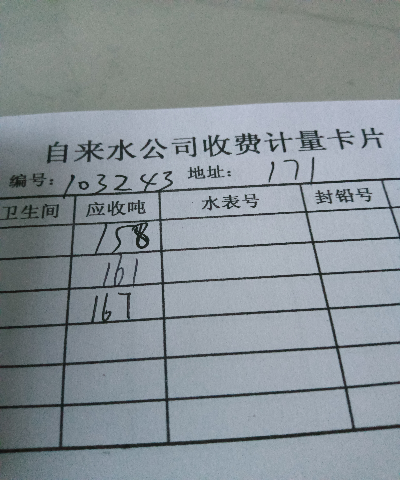 自来水公司收费计量卡片
编号: 103243 地址: 171
卫生间 应收吨 水表号 封铅号
158
161
167